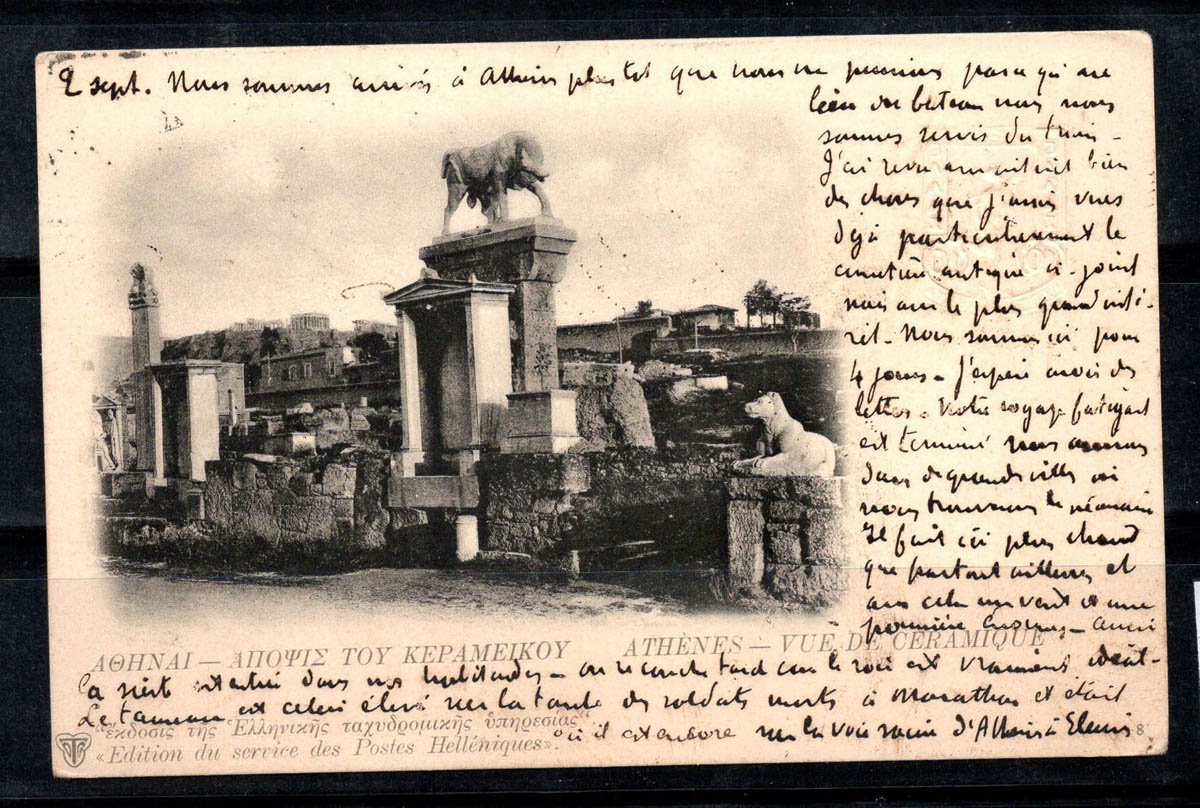 2 sept. Nous sommes arrivés à Athènes plus tot que nous ne pensions parce qu'au
lieu du bateau nous nous
sommes servis du train -
J'ai revu bien
des choses que j'avais vues
déjà particulièrement le
cimetière antique ci-joint
mais avec le plus grand inté-
rêt. Nous sommes ici pour
4 jours - J'espère avoir des
lettres. Notre voyage fatigant
est terminé nous sommes
dans de grandes villes où
nous trouvons le nécessaire
Il fait ici plus chaud
que partout ailleurs et
avec cela un vent et une
poussière énormes - aussi
ΑΘΗΝΑΙ — ΑΠΟΨΙΣ ΤΟΥ ΚΕΡΑΜΕΙΚΟΥ ATHÈNES — VUE DE CÉRAMIQUE
la nuit dans nos habitudes - on se couche tard car le soir est vraiment idéal -
Le taureau est celui élevé sur la tombe des soldats morts à Marathon et était
"ἔκδοσις τῆς Ἑλληνικῆς ταχυδρομικῆς ὑπηρεσίας"
où il est encore sur la voie sacrée d'Athènes à Eleusis 8
«Edition du service des Postes Helléniques».